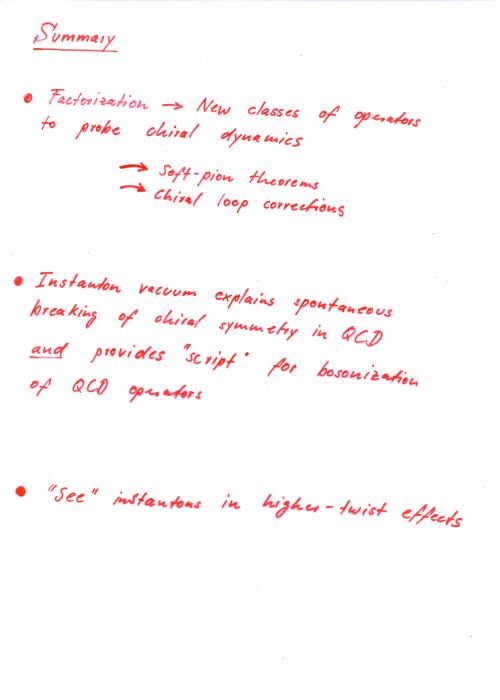 Summary
• Factorization → New classes of operators
to probe chiral dynamics
→ Soft-pion theorems
→ Chiral loop corrections
• Instanton vacuum explains spontaneous
breaking of chiral symmetry in QCD
and provides "script" for bosonization
of QCD operators
• "See" instantons in higher-twist effects